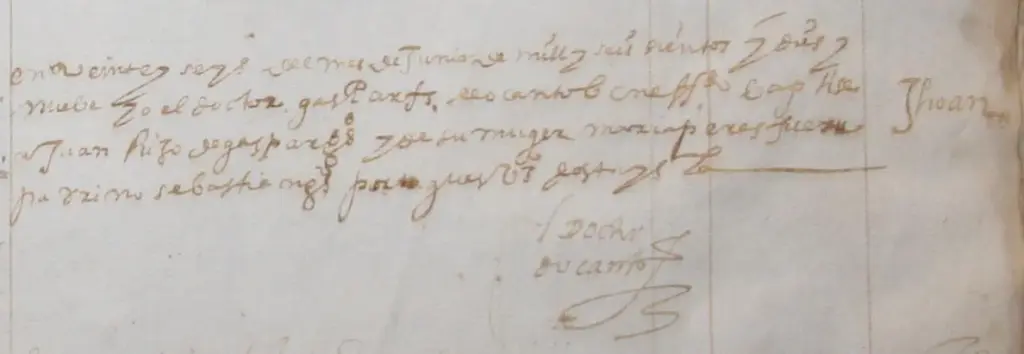 en veinte y seys del mes de Junio de mill y seis cientos y dies y
nuebe yo el doctor gaspar docanto benefdo bapthe
a Juan hijo de gaspar gs y de su muger maria peres fue su
padrino sebastian gs portugueses
Jhoan
Doctor
docanto